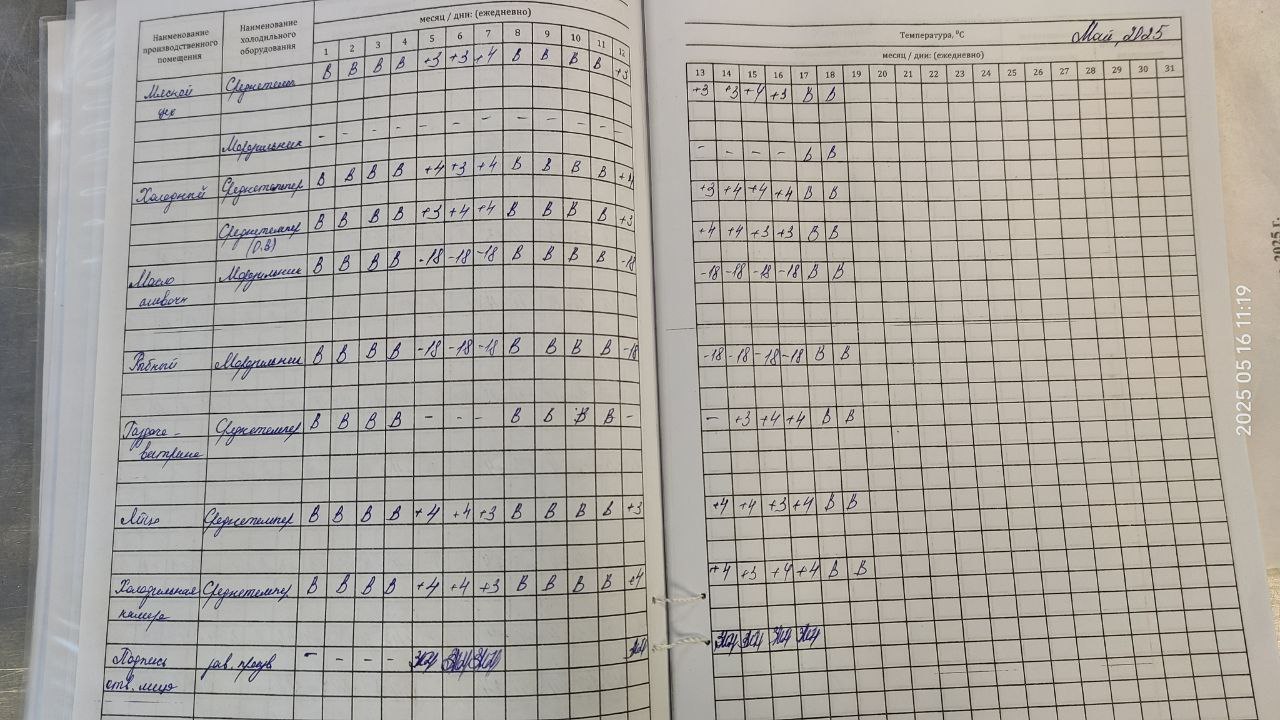 месяц / дни: (ежедневно)
Наименование производственного помещения
Наименование холодильного оборудования
1 2 3 4 5 6 7 8 9 10 11 12
Мясной цех Среднетемп В В В В +3 +3 +4 В В В В +3
Морозильник - - - - - - - - - - - -
Холодный Среднетемпер В В В В +4 +3 +4 В В В В +4
Среднетемпер (О.В) В В В В +3 +4 +4 В В В В +3
Масло сливочн Морозильник В В В В -18 -18 -18 В В В В -18
Рыбный Морозильник В В В В -18 -18 -18 В В В В -18
витрина Среднетемпер В В В В - - - В В В В -
Яйцо Среднетемпер В В В В +4 +4 +3 В В В В +3
Холодильная камера Среднетемпер В В В В +4 +4 +3 В В В В +4
Подпись отв. лица зав. произв - - - -
Температура, °С
Май, 2025
месяц / дни: (ежедневно)
13 14 15 16 17 18 19 20 21 22 23 24 25 26 27 28 29 30 31
+3 +3 +4 +3 В В
- - - - В В
+3 +4 +4 +4 В В
+4 +4 +3 +3 В В
-18 -18 -18 -18 В В
-18 -18 -18 -18 В В
- +3 +4 +4 В В
+4 +4 +3 +4 В В
+4 +3 +4 +4 В В
2025 г.
2025 05 16 11:19